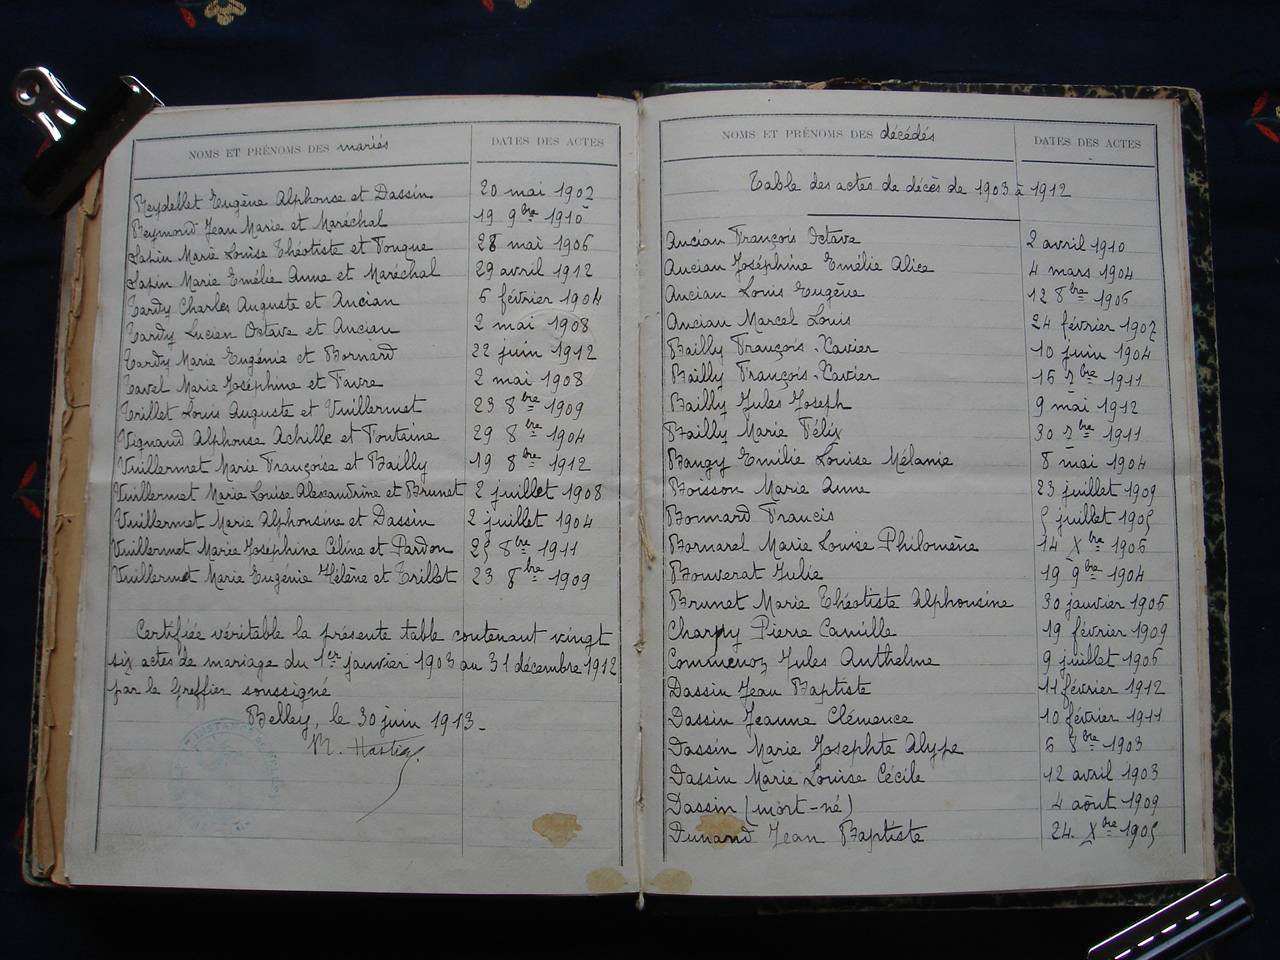 NOMS ET PRÉNOMS DES mariés
DATES DES ACTES
Reydellet Eugène Alphonse et Dassin 20 mai 1902
Reymond Jean Marie et Maréchal 19 9bre 1910
Sapin Marie Louise Théotiste et Fongue 28 mai 1906
Sapin Marie Emélie Anne et Maréchal 29 avril 1912
Tardy Charles Auguste et Ancian 6 février 1904
Tardy Lucien Octave et Ancian 2 mai 1908
Tardy Marie Eugénie et Bornard 22 juin 1912
Tavel Marie Joséphine et Favre 2 mai 1908
Trillet Louis Auguste et Vuillermet 23 8bre 1909
Vignand Alphonse Achille et Fontaine 29 8bre 1904
Vuillermet Marie Françoise et Bailly 19 8bre 1912
Vuillermet Marie Louise Alexandrine et Brunet 2 juillet 1908
Vuillermet Marie Alphonsine et Dassin 2 juillet 1904
Vuillermet Marie Joséphine Céline et Pardon 25 8bre 1911
Vuillermet Marie Eugénie Hélène et Trillet 23 8bre 1909
Certifiée véritable la présente table contenant vingt
six actes de mariage du 1er janvier 1903 au 31 décembre 1912
par le Greffier soussigné
Belley, le 30 juin 1913 -
NOMS ET PRÉNOMS DES décédés
DATES DES ACTES
Table des actes de décès de 1903 à 1912
Ancian François Octave 2 avril 1910
Ancian Joséphine Emélie Alice 4 mars 1904
Ancian Louis Eugène 12 8bre 1906
Ancian Marcel Louis 24 février 1907
Bailly François-Xavier 10 juin 1904
Bailly François-Xavier 16 7bre 1911
Bailly Jules Joseph 9 mai 1912
Bailly Marie Félix 30 7bre 1911
Baugy Emilie Louise Mélanie 8 mai 1904
Boisson Marie Anne 23 juillet 1909
Bonnard Francis 5 juillet 1905
Bornarel Marie Louise Philomène 14 Xbre 1906
Bouverat Julie 19 9bre 1904
Brunet Marie Théotiste Alphonsine 30 janvier 1906
Charpy Pierre Camille 19 février 1909
Commenoz Jules Anthelme 9 juillet 1906
Dassin Jean Baptiste 11 février 1912
Dassin Jeanne Clémence 10 février 1911
Dassin Marie Josephte Alype 6 8bre 1903
Dassin Marie Louise Cécile 12 avril 1903
Dassin (mort-né) 4 août 1909
Dunand Jean Baptiste 24 Xbre 1905